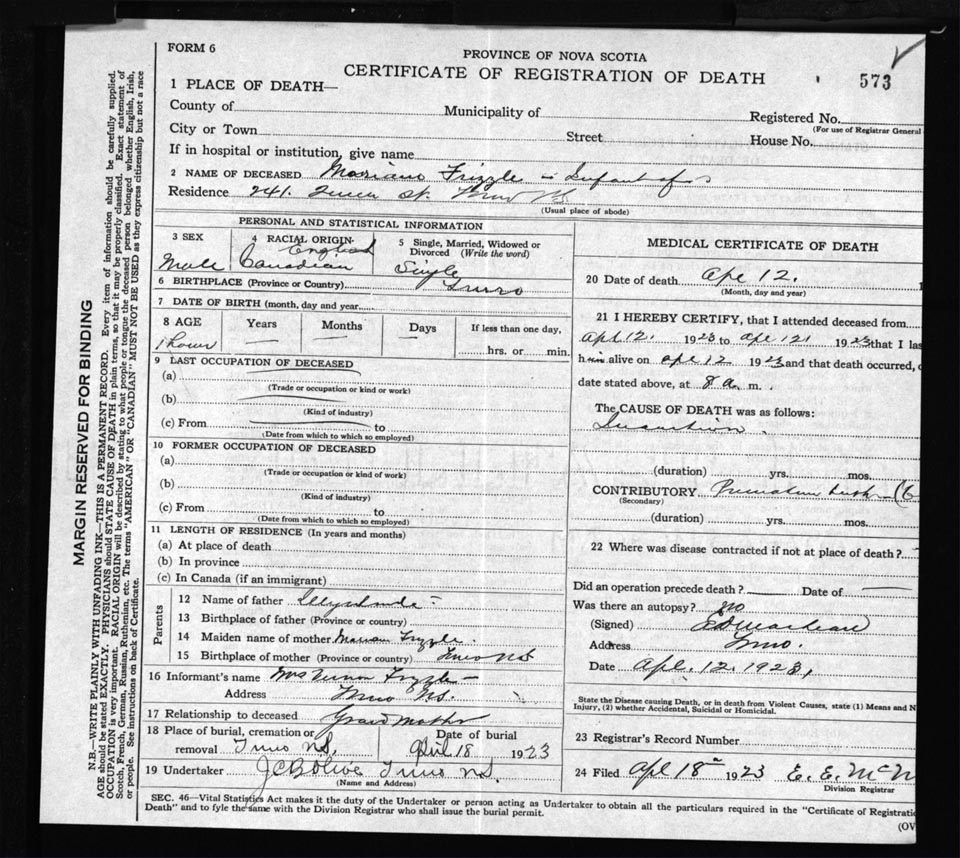 FORM 6
PROVINCE OF NOVA SCOTIA
CERTIFICATE OF REGISTRATION OF DEATH
573
1 PLACE OF DEATH—
County of
Municipality of
Registered No.
(For use of Registrar General
City or Town
Street
House No.
If in hospital or institution, give name
2 NAME OF DECEASED Frizzle - Infant of
Residence 241. Queen St. Truro NS
(Usual place of abode)
PERSONAL AND STATISTICAL INFORMATION
3 SEX
Male
4 RACIAL ORIGIN
English
Canadian
5 Single, Married, Widowed or Divorced (Write the word)
Single
6 BIRTHPLACE (Province or Country) Truro
7 DATE OF BIRTH (month, day and year)
8 AGE
Years
Months
Days
If less than one day,
1 hour
hrs. or min.
9 LAST OCCUPATION OF DECEASED
(a)
(Trade or occupation or kind or work)
(b)
(Kind of industry)
(c) From to
(Date from which to which so employed)
10 FORMER OCCUPATION OF DECEASED
(a)
(Trade or occupation or kind of work)
(b)
(Kind of industry)
(c) From to
(Date from which to which so employed)
11 LENGTH OF RESIDENCE (In years and months)
(a) At place of death
(b) In province
(c) In Canada (if an immigrant)
Parents
12 Name of father
13 Birthplace of father (Province or country)
14 Maiden name of mother Frizzle
15 Birthplace of mother (Province or country) Truro NS
16 Informant's name Mrs Vernon Frizzle
Address Truro NS.
17 Relationship to deceased Grand Mother
18 Place of burial, cremation or removal Truro NS.
Date of burial
April 18 1923
19 Undertaker Truro NS.
(Name and Address)
MEDICAL CERTIFICATE OF DEATH
20 Date of death Apl 12.
(Month, day and year)
21 I HEREBY CERTIFY, that I attended deceased from
Apl. 12. 1923 to Apl 12, 1923 that I las
h alive on Apl 12 1923 and that death occurred,
date stated above, at 8 a. m.
The CAUSE OF DEATH was as follows:
(duration) yrs. mos.
CONTRIBUTORY Premature birth (6
(Secondary)
(duration) yrs. mos.
22 Where was disease contracted if not at place of death?
Did an operation precede death? Date of
Was there an autopsy? No
(Signed)
Address Truro.
Date Apl. 12. 1923,
State the Disease causing Death, or in death from Violent Causes, state (1) Means and N
Injury, (2) whether Accidental, Suicidal or Homicidal.
23 Registrar's Record Number
24 Filed Apl 18 1923 E. E. McN
Division Registrar
SEC. 46—Vital Statistics Act makes it the duty of the Undertaker or person acting as Undertaker to obtain all the particulars required in the "Certificate of Registratio
Death" and to fyle the same with the Division Registrar who shall issue the burial permit.
(OV
MARGIN RESERVED FOR BINDING
N.B.—WRITE PLAINLY WITH UNFADING INK—THIS IS A PERMANENT RECORD. Every item of information should be carefully supplied.
AGE should be stated EXACTLY. PHYSICIANS should STATE CAUSE OF DEATH in plain terms, so that it may be properly classified. Exact statement of
OCCUPATION is very important. RACIAL ORIGIN will be described by stating to what people or tongue the deceased person belonged whether English, Irish,
Scotch, French, German, Russian, Ruthenian, etc. The terms "AMERICAN" OR "CANADIAN" MUST NOT BE USED as they express citizenship but not a race
or people. See instructions on back of Certificate.